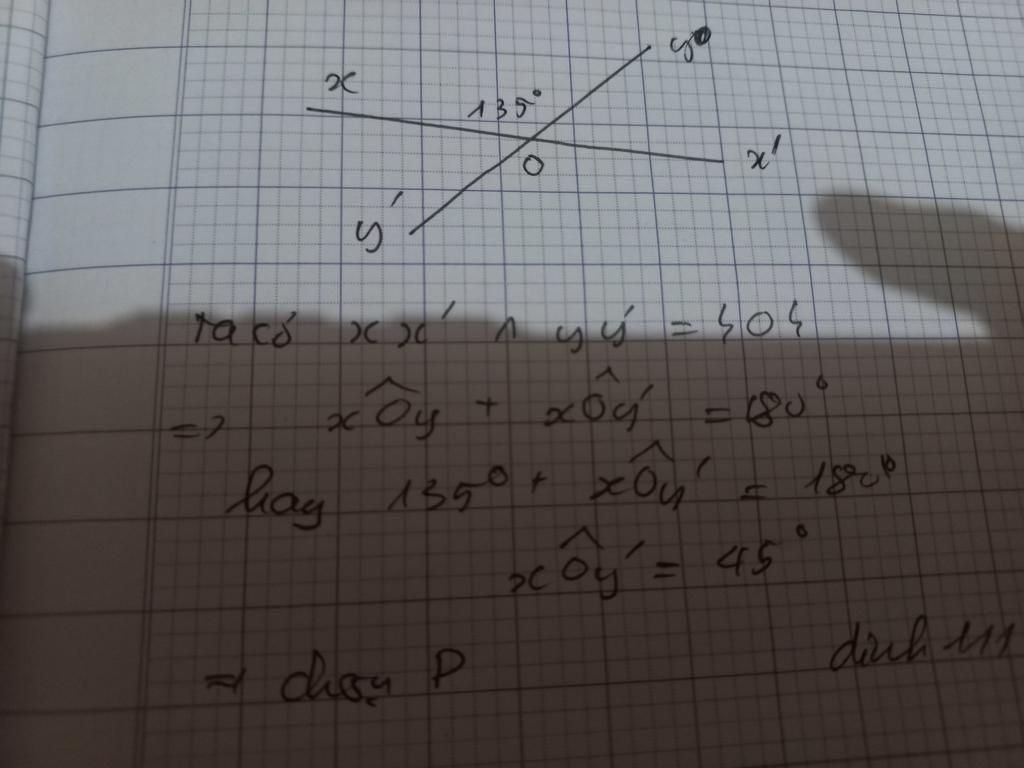 x
y
135°
x'
O
y'
ta có xx' ∩ yy' = {O}
=> xÔy + xÔy' = 180°
hay 135° + xÔy' = 180°
xÔy' = 45°
=> chọn D
dinh 111